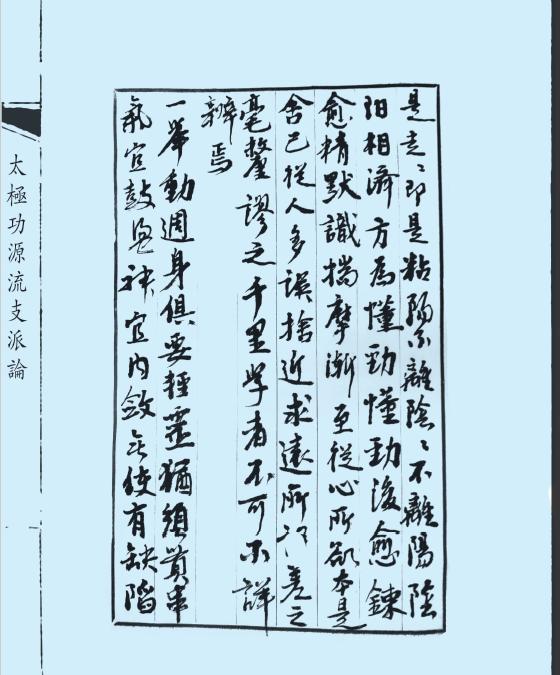 是走〻即是粘陽不離陰〻不離陽陰
陽相濟方為懂勁懂勁後愈鍊
愈精默識揣摩漸至從心所欲本是
舍己從人多誤捨近求遠所謂差之
毫釐謬之千里學者不可不詳
辨焉
一舉動週身俱要輕靈猶須貫串
氣宜鼓盪神宜內斂無使有缺陷
太極功源流支派論